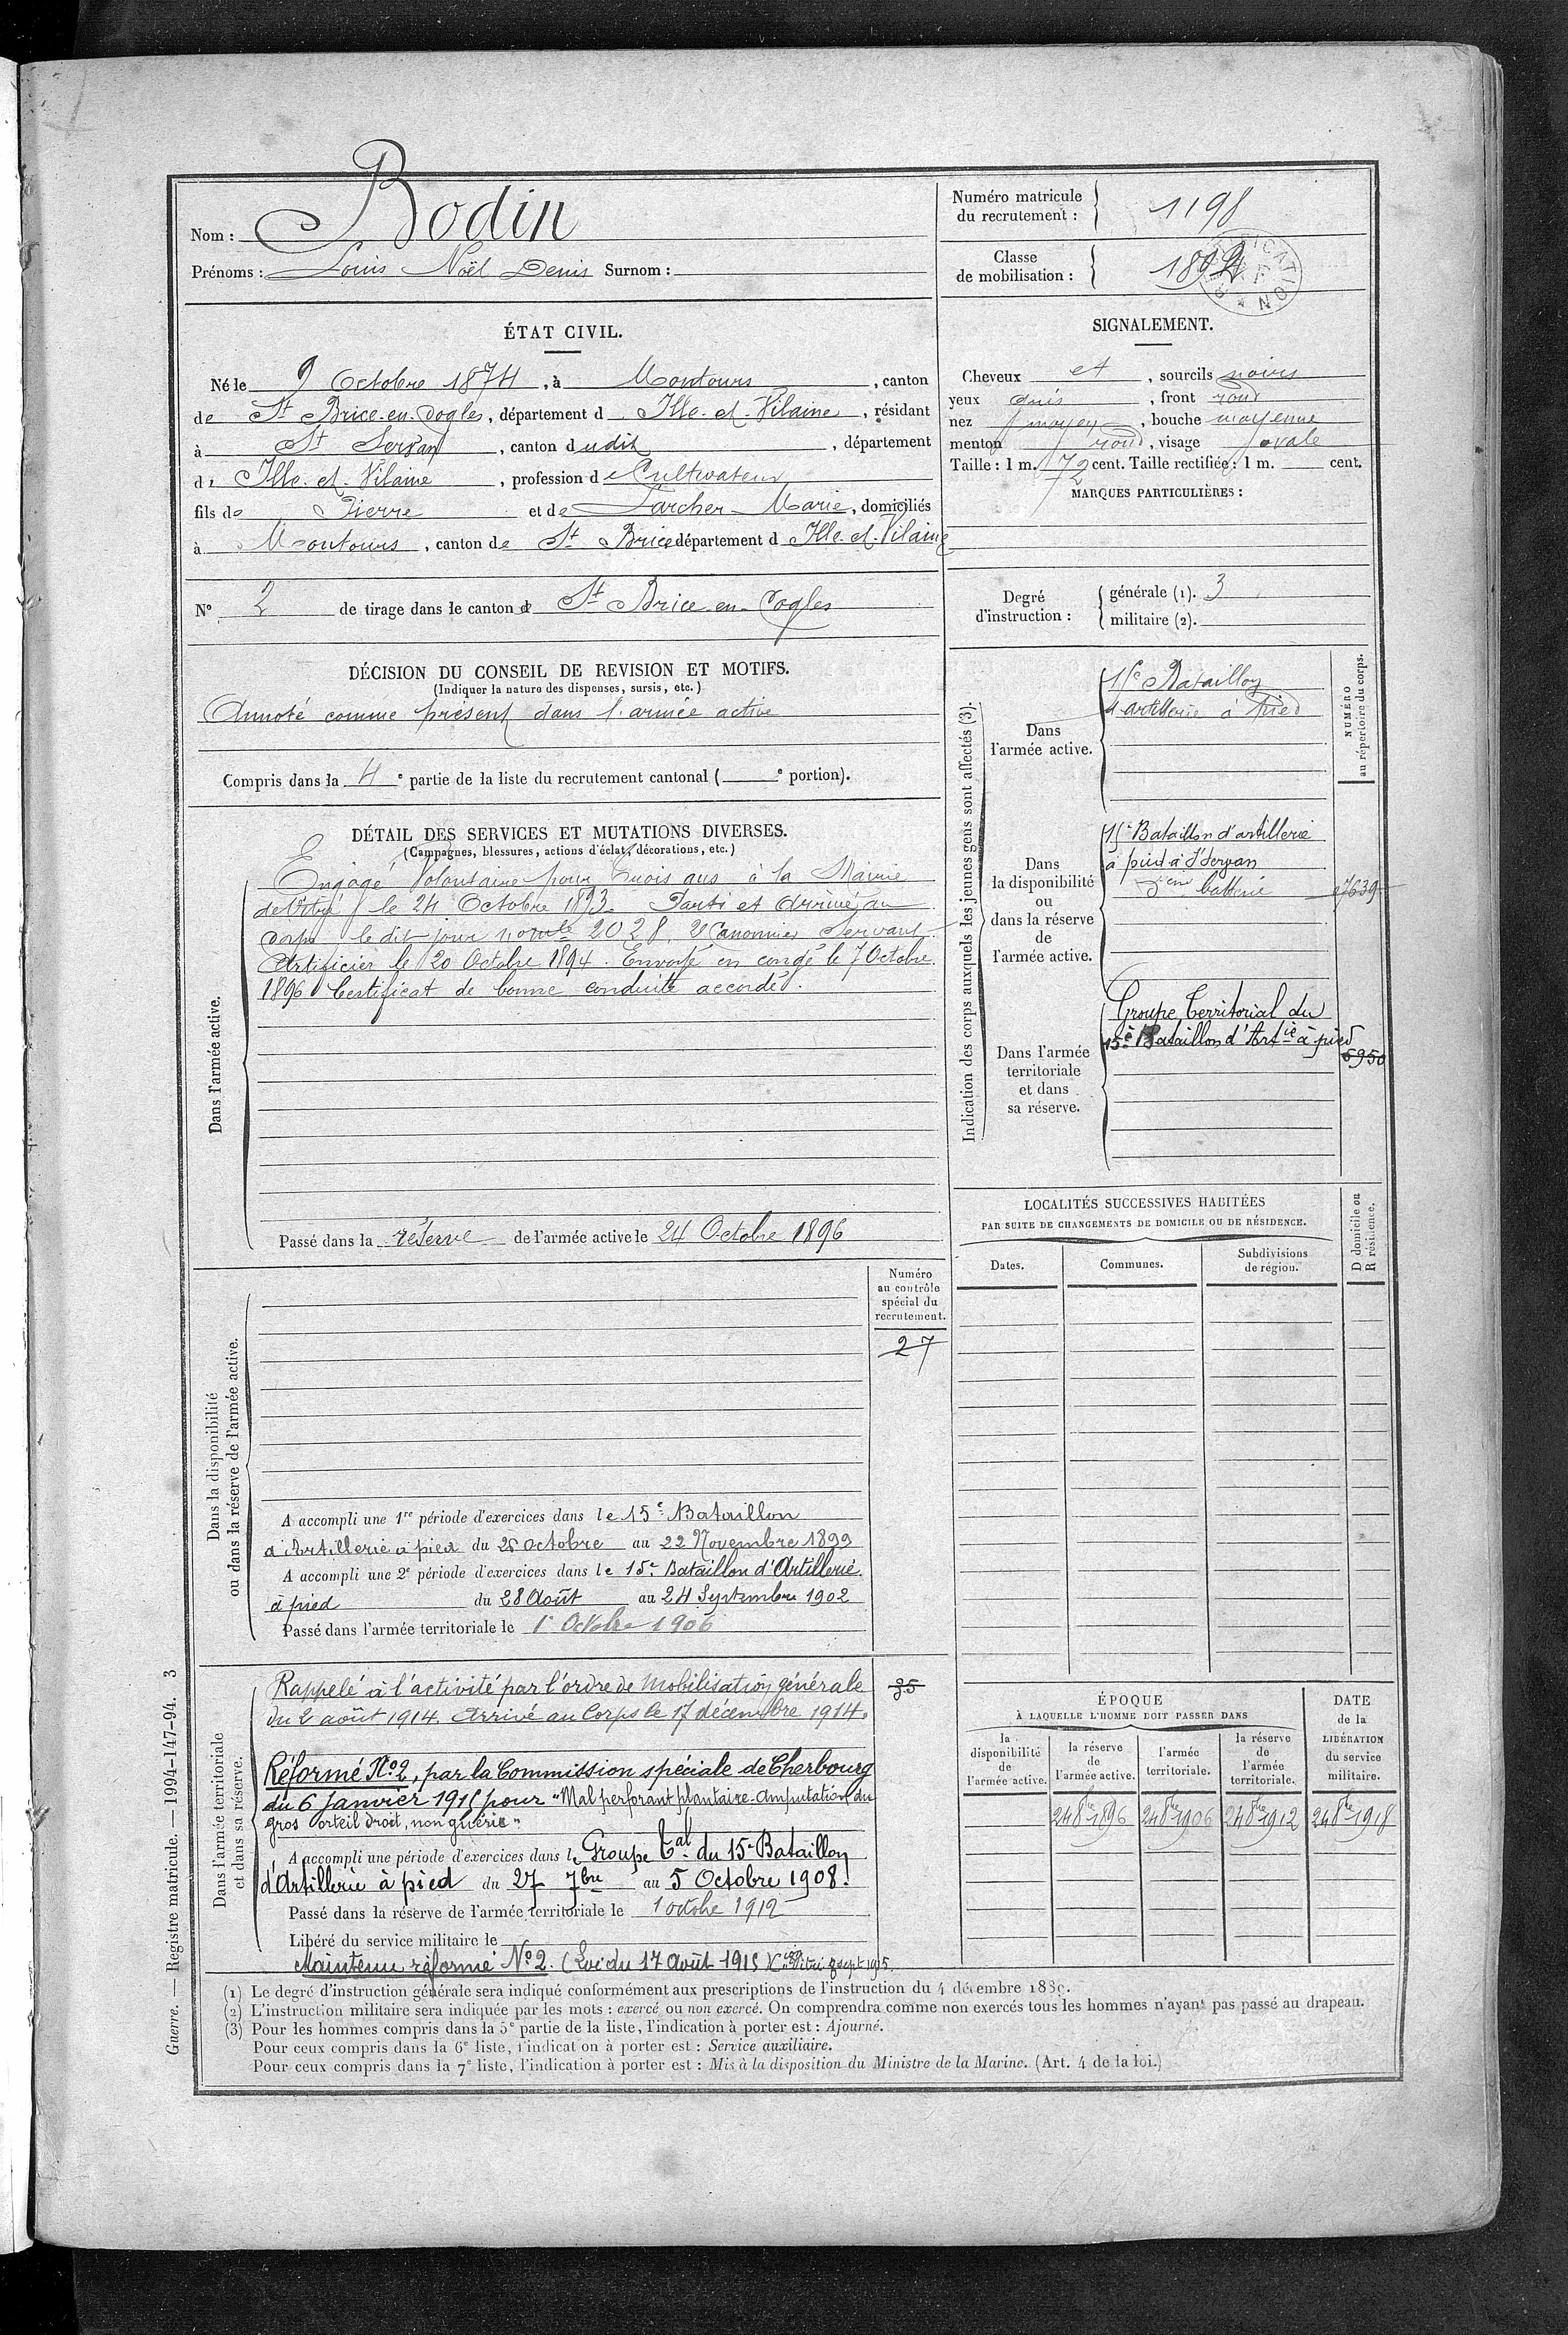 Nom : Bodin
Prénoms : Louis Noël Denis Surnom :
Numéro matricule
du recrutement :
1198
Classe
de mobilisation :
ÉTAT CIVIL.
Né le 9 Octobre 1874, à Montours, canton
de St Brice-en-Cogles, département d Ille-et-Vilaine, résidant
à St Servan, canton dudit, département
de Ille-et-Vilaine, profession de Cultivateur
fils de Pierre et de Larcher Marie, domiciliés
à Montours, canton de St Brice département d Ille-et-Vilaine
N° 2 de tirage dans le canton de St Brice-en-Cogles
SIGNALEMENT.
Cheveux et, sourcils noirs
yeux gris, front rond
nez moyen, bouche moyenne
menton rond, visage ovale
Taille : 1 m. 72 cent. Taille rectifiée : 1 m. cent.
MARQUES PARTICULIÈRES :
Degré
d'instruction :
générale (1). 3
militaire (2).
DÉCISION DU CONSEIL DE REVISION ET MOTIFS.
(Indiquer la nature des dispenses, sursis, etc.)
Annoté comme présent dans l'armée active
Compris dans la 4e partie de la liste du recrutement cantonal ( e portion).
DÉTAIL DES SERVICES ET MUTATIONS DIVERSES.
(Campagnes, blessures, actions d'éclat, décorations, etc.)
Dans l'armée active.
Engagé Volontaire pour trois ans à la Mairie
de Vitré le 24 Octobre 1893. Parti et Arrivé au
corps le dit jour 2028, 2e Canonnier Servant
Artificier le 20 Octobre 1894. Envoyé en congé le 7 Octobre
1896 Certificat de bonne conduite accordé.
Passé dans la réserve de l'armée active le 24 Octobre 1896
Indication des corps auxquels les jeunes gens sont affectés (3).
NUMÉRO
au répertoire du corps.
Dans
l'armée active.
15e Bataillon
d'artillerie à pied
Dans
la disponibilité
ou
dans la réserve
de
l'armée active.
15e Bataillon d'artillerie
à pied à St Servan
batterie
Dans l'armée
territoriale
et dans
sa réserve.
Groupe Territorial du
15e Bataillon d'Artie à pied
6950
LOCALITÉS SUCCESSIVES HABITÉES
PAR SUITE DE CHANGEMENTS DE DOMICILE OU DE RÉSIDENCE.
Dates.
Communes.
Subdivisions
de région.
D domicile ou
R résidence.
Dans la disponibilité
ou dans la réserve de l'armée active.
Numéro
au contrôle
spécial du
recrutement.
27
A accompli une 1re période d'exercices dans le 15e Bataillon
d'Artillerie à pied du Octobre au 22 Novembre 1899
A accompli une 2e période d'exercices dans le 15e Bataillon d'Artillerie
à pied du 28 Août au 24 Septembre 1902
Passé dans l'armée territoriale le 1r Octobre 1906
Dans l'armée territoriale
et dans sa réserve.
35
Rappelé à l'activité par l'ordre de Mobilisation générale
du 2 août 1914. Arrivé au Corps le 17 décembre 1914.
Réformé N°2, par la Commission spéciale de Cherbourg
du 6 Janvier 1915 pour "Mal perforant plantaire. Amputation du
gros orteil droit, non guérie"
A accompli une période d'exercices dans le Groupe Tal du 15e Bataillon
d'Artillerie à pied du 27 7bre au 5 Octobre 1908.
Passé dans la réserve de l'armée territoriale le 1 octobre 1912
Libéré du service militaire le
Maintenu réformé N°2. (Loi du 17 Août 1915 Vitré sept 1915.
ÉPOQUE
À LAQUELLE L'HOMME DOIT PASSER DANS
la
disponibilité
de
l'armée active.
la réserve
de
l'armée active.
l'armée
territoriale.
la réserve
de
l'armée
territoriale.
DATE
de la
LIBÉRATION
du service
militaire.
24 8bre 1896
24 8bre 1906
24 8bre 1912
24 8bre 1918
(1) Le degré d'instruction générale sera indiqué conformément aux prescriptions de l'instruction du 4 décembre 1889.
(2) L'instruction militaire sera indiquée par les mots : exercé ou non exercé. On comprendra comme non exercés tous les hommes n'ayant pas passé au drapeau.
(3) Pour les hommes compris dans la 5e partie de la liste, l'indication à porter est : Ajourné.
Pour ceux compris dans la 6e liste, l'indication à porter est : Service auxiliaire.
Pour ceux compris dans la 7e liste, l'indication à porter est : Mis à la disposition du Ministre de la Marine. (Art. 4 de la loi.)
Guerre. — Registre matricule. — 1994-147-94. 3